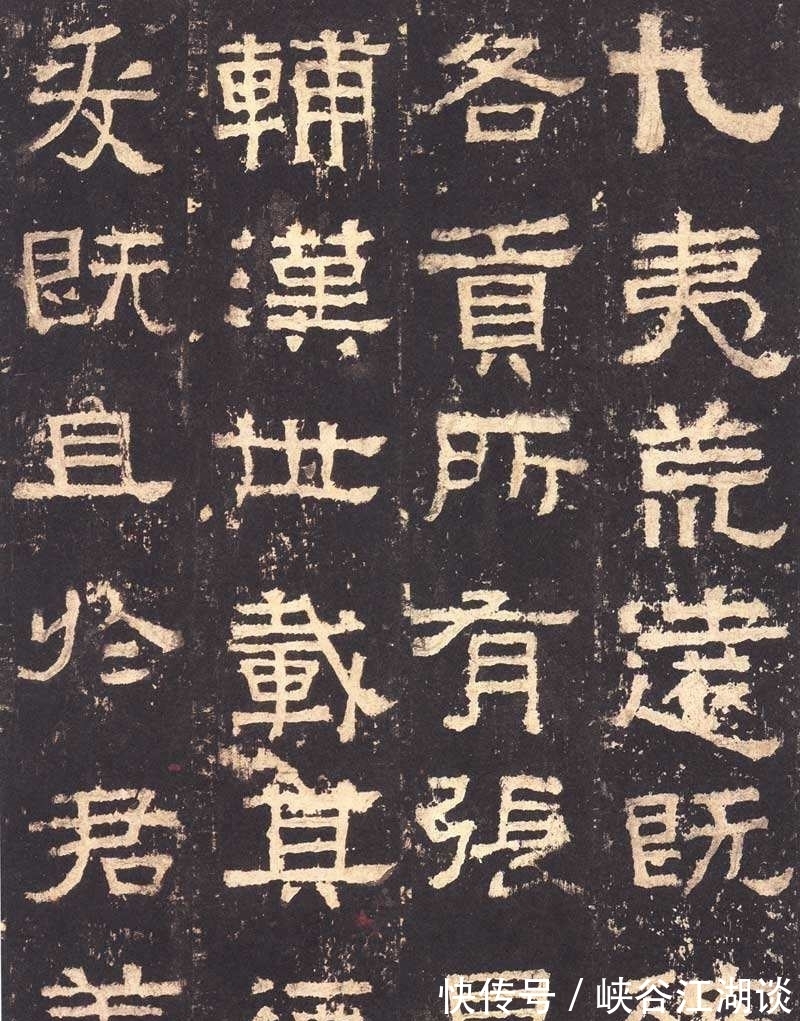 九夷荒遠既
各貢所有張
輔漢世載其
爰既且於君
快传号/峡谷江湖谈